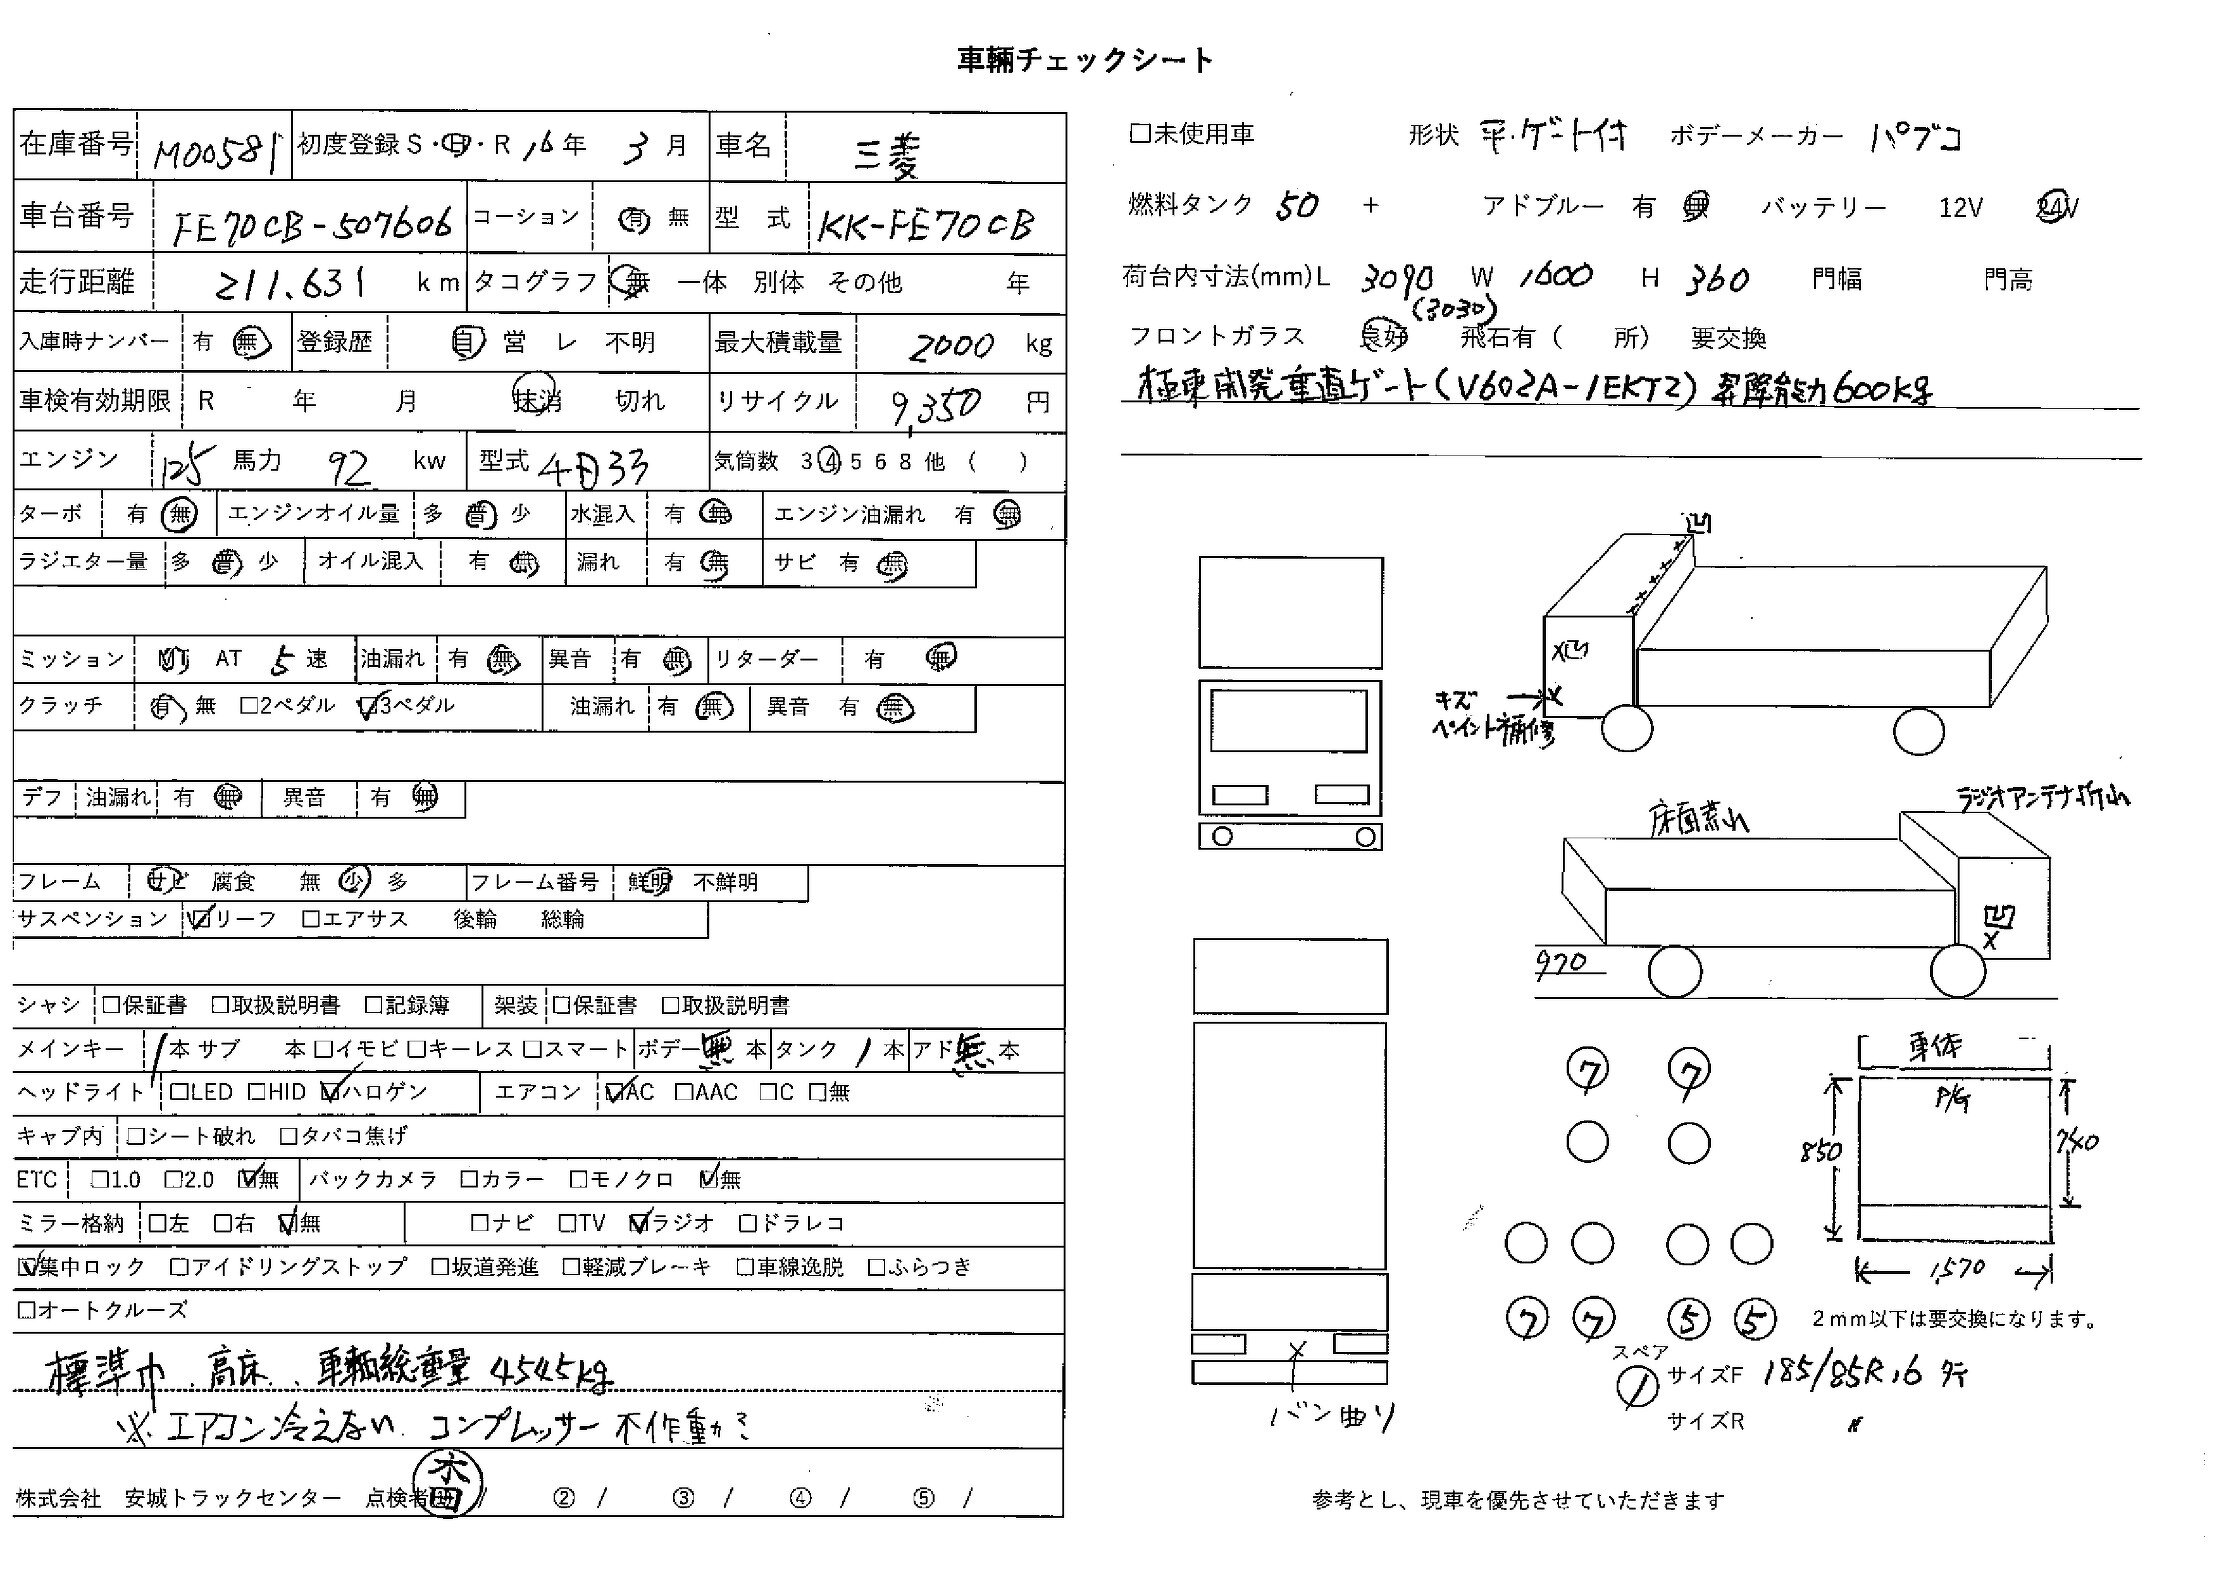 車輛チェックシート
在庫番号 M00581 初度登録 S・H・R 16年 3月 車名 三菱
車台番号 FE70CB-507606 コーション 有 無 型 式 KK-FE70CB
走行距離 211.631 km タコグラフ 無 一体 別体 その他 年
入庫時ナンバー 有 無 登録歴 自 営 レ 不明 最大積載量 2000 kg
車検有効期限 R 年 月 抹消 切れ リサイクル 9,350 円
エンジン 125 馬力 92 kw 型式 4D33 気筒数 3 4 5 6 8 他 ( )
ターボ 有 無 エンジンオイル量 多 普 少 水混入 有 無 エンジン油漏れ 有 無
ラジエター量 多 普 少 オイル混入 有 無 漏れ 有 無 サビ 有 無
ミッション MT AT 5 速 油漏れ 有 無 異音 有 無 リターダー 有 無
クラッチ 有 無 □2ペダル ☑3ペダル 油漏れ 有 無 異音 有 無
デフ 油漏れ 有 無 異音 有 無
フレーム サビ 腐食 無 少 多 フレーム番号 鮮明 不鮮明
サスペンション ☑リーフ □エアサス 後輪 総輪
シャシ □保証書 □取扱説明書 □記録簿 架装 □保証書 □取扱説明書
メインキー 1本 サブ 本 □イモビ □キーレス □スマート ボデー 無 本 タンク 1 本 アド 無 本
ヘッドライト □LED □HID ☑ハロゲン エアコン ☑AC □AAC □C □無
キャブ内 □シート破れ □タバコ焦げ
ETC □1.0 □2.0 ☑無 バックカメラ □カラー □モノクロ ☑無
ミラー格納 □左 □右 ☑無 □ナビ □TV ☑ラジオ □ドラレコ
☑集中ロック □アイドリングストップ □坂道発進 □軽減ブレーキ □車線逸脱 □ふらつき
□オートクルーズ
標準巾、高床、車輌総重量 4545kg
※エアコン冷えない コンプレッサー不作動?
株式会社 安城トラックセンター 点検者① / ② / ③ / ④ / ⑤ /
□未使用車 形状 平・ゲート付 ボデーメーカー パブコ
燃料タンク 50 + アドブルー 有 無 バッテリー 12V 24V
荷台内寸法(mm)L 3090 W 1600 H 360 門幅 門高
(3030)
フロントガラス 良好 飛石有 ( 所) 要交換
極東開発垂直ゲート(V602A-1EKT2)昇降能力600kg
凹
X凹
キズ→X
ペイント補修
床面荒れ ラジオアンテナ折れ
凹
X
970
7 7
車体
P/G
850 740
1,570
7 7 5 5 2mm以下は要交換になります。
スペア
/ サイズF 185/85R16
サイズR 〃
X
バン曲り
参考とし、現車を優先させていただきます